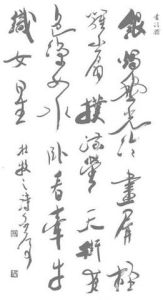 銀燭秋光冷畫屏輕
羅小扇撲流螢天街夜
色涼如水臥看牽牛
織女星
杜牧之詩